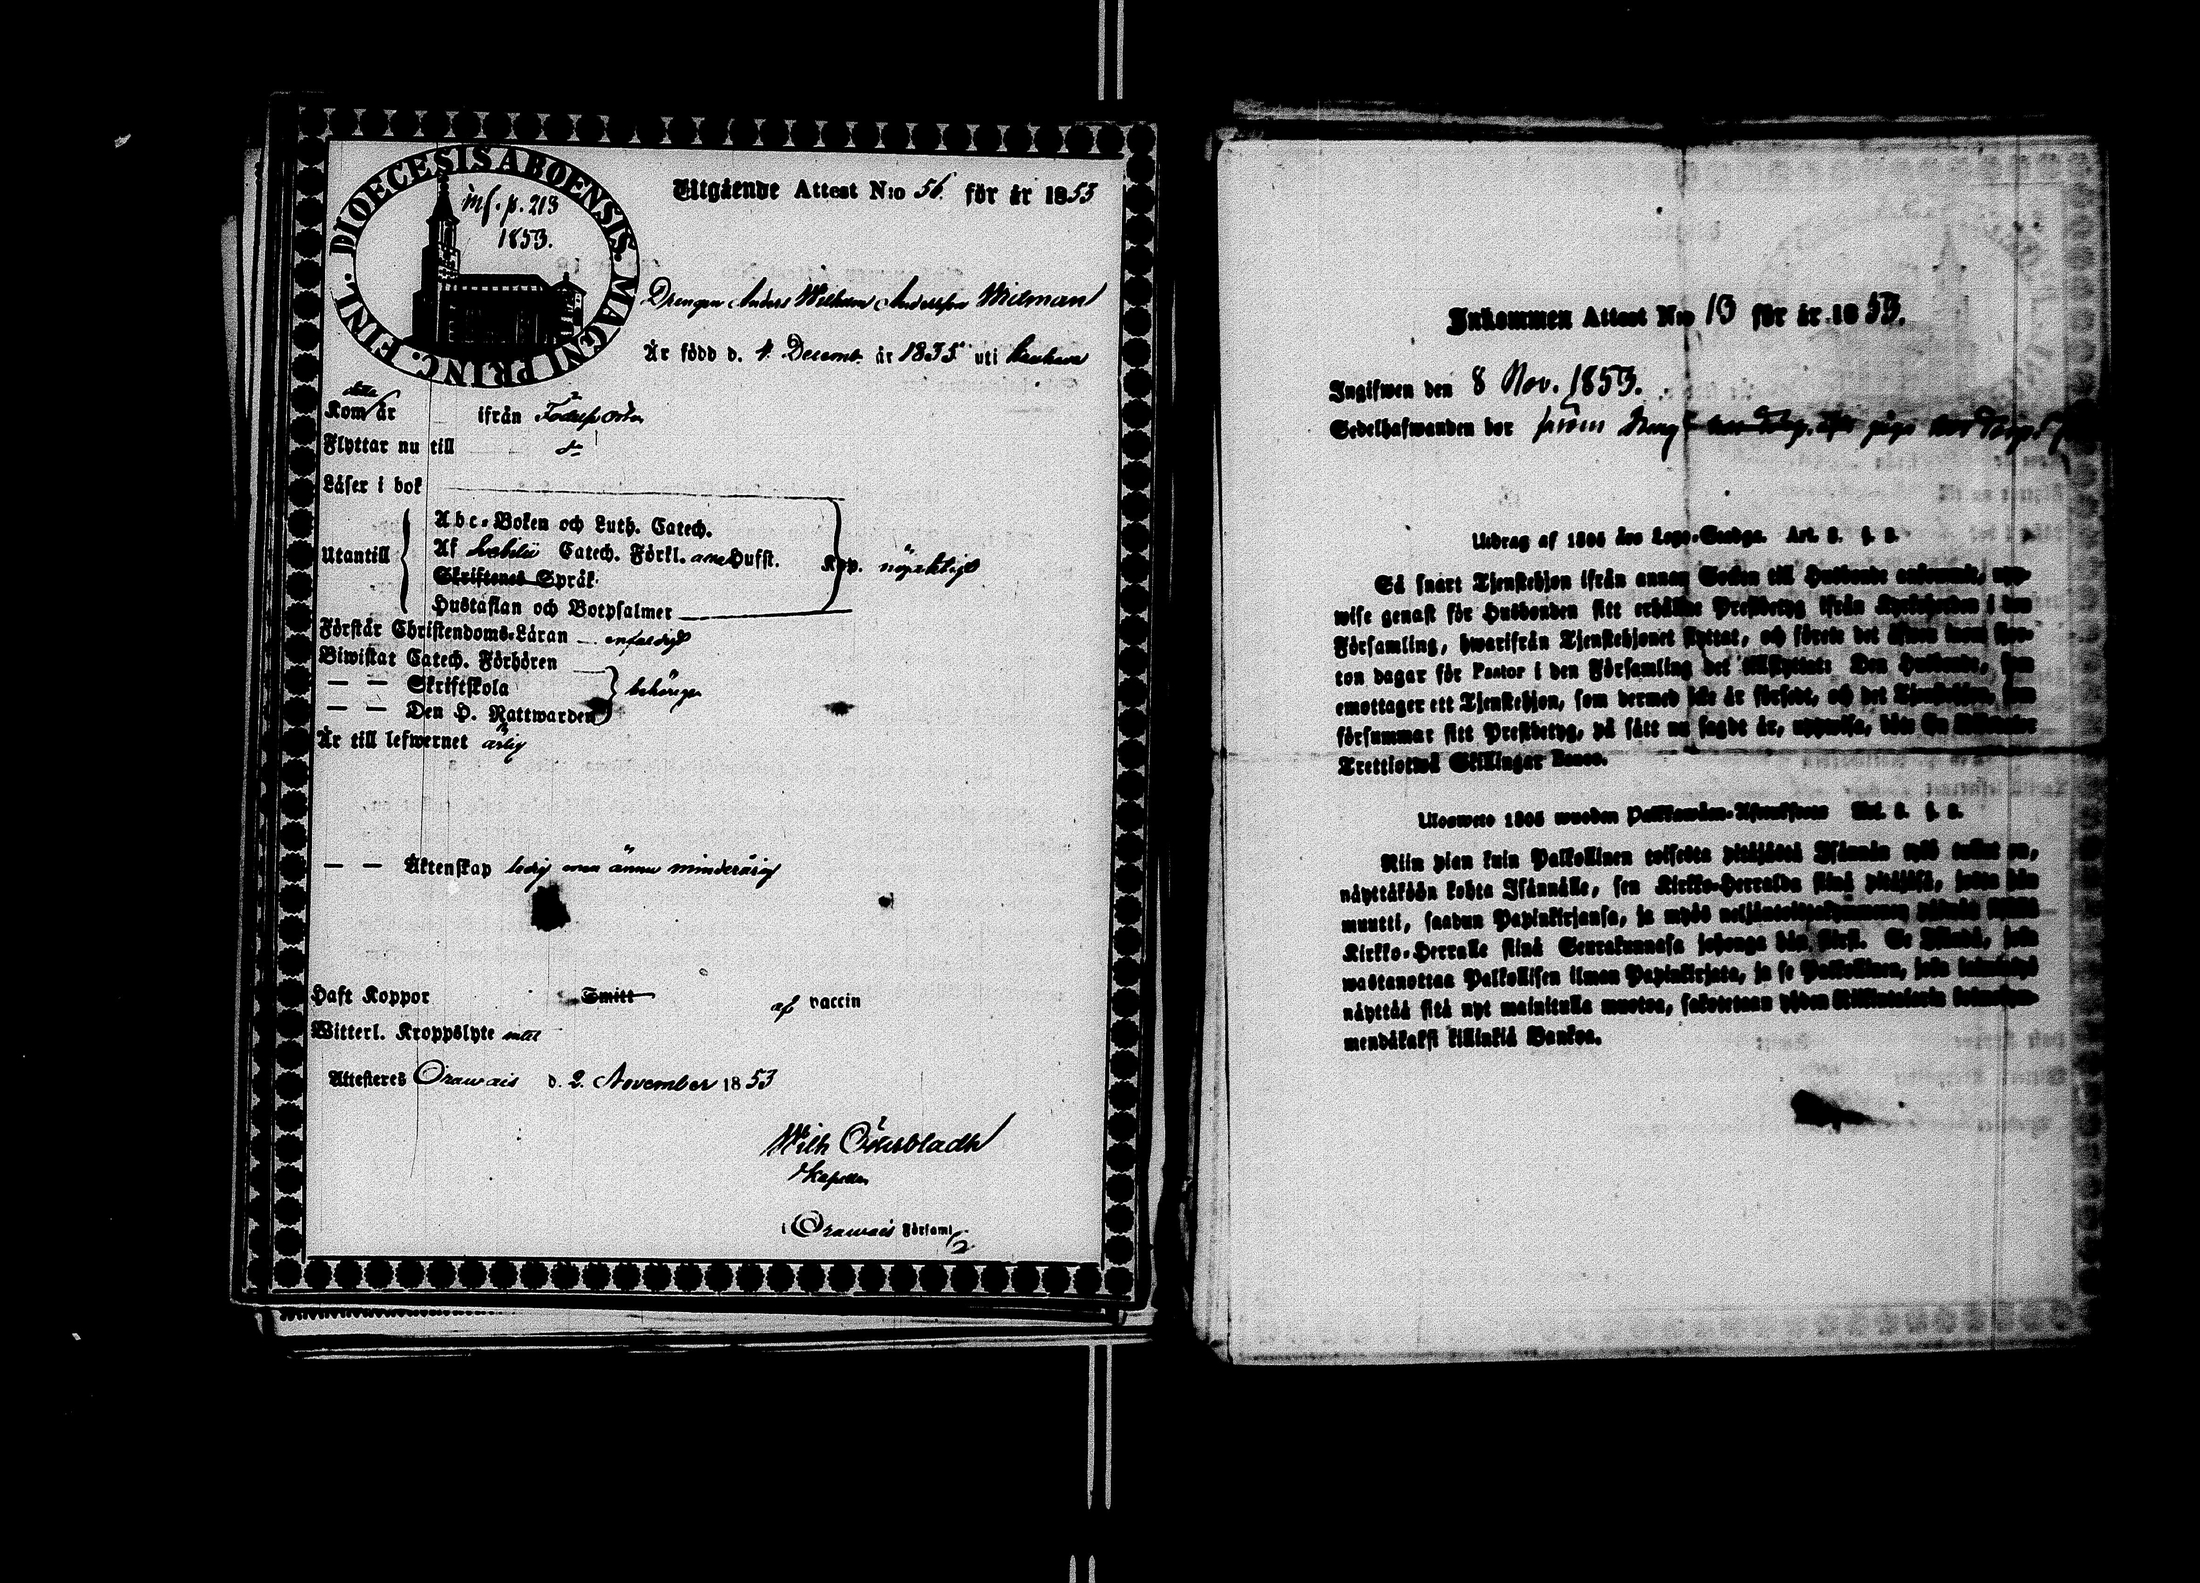 DIOECESIS ABOENSIS. MAGNI PRINC. FINL.
inf. p. 213
1853.
Utgående Attest N:o 56. för år 1853
Drengen Anders Wilhelm Andersson Widman
Är född d. 4. Decemb. år 1835 uti
Kom detta år ifrån Födelseorten
Flyttar nu till do
Läser i bok
Utantill
Abc-Boken och Luth. Catech.
Af Svebelii Catech. Förkl. Hufst.
Skriftenes Språk
Hustaflan och Botpsalmer
nöjaktigt
Förstår Christendoms-Läran enfaldigt
Biwistat Catech. Förhören
— — Skriftskola
— — Den H. Nattwarden
behörigen
Är till lefwernet ärlig
— — Äktenskap ledig men ännu minderårig
Haft Koppor Smitt af vaccin
Witterl. Kroppslyte intet
Attesteras Orawais d. 2. November 1853
Wilh Österbladh
i Orawais Församl.
Inkommen Attest N:o 13 för år 1853.
Ingifwen den 8 Nov. 1853.
Sedelhafwanden bor
Utdrag af 1805 års Lego-Stadga. Art. 3. §. 2.
Så snart Tjenstehjon ifrån annan Socken till Husbonde ankommit, upp-
wise genast för Husbonden sitt erhållne Prestbetyg ifrån Kyrkoherden i den
Församling, hwarifrån Tjenstehjonet flyttat, och förete det äfwen inom fjor-
ton dagar för Pastor i den Församling det tillflyttat: Den Husbonde, som
emottager ett Tjenstehjon, som dermed icke är försedt, och det Tjenstehjon, som
försummar sitt Prestbetyg, på sätt nu sagdt är, uppwisa, böte En Riksdaler
Trettiotwå Skillingar Banco.
Ulosweto 1805 wuoden Palkkawäen-Asetuksesta
Niin pian kuin Palkollinen toisesta pitäjästä Isännän tykö tullut on,
näyttäköön kohta Isännälle, sen Kirkko-Herralda siinä pitäjäsä, josta hän
muutti, saadun Papinkirjansa, ja myös neljäntoistakymmenen päiwän
Kirkko-Herralle siinä Seurakunnasa johonga hän siirsi. Se Isändä, joka
wastanottaa Palkollisen ilman Papinkirjata, ja se Palkollinen, joka laiminlyö
näyttää sitä nyt mainitulla muotoa, sakotetaan yhden Riikintalarin
mendäkaksi killinkiä Bankoa.